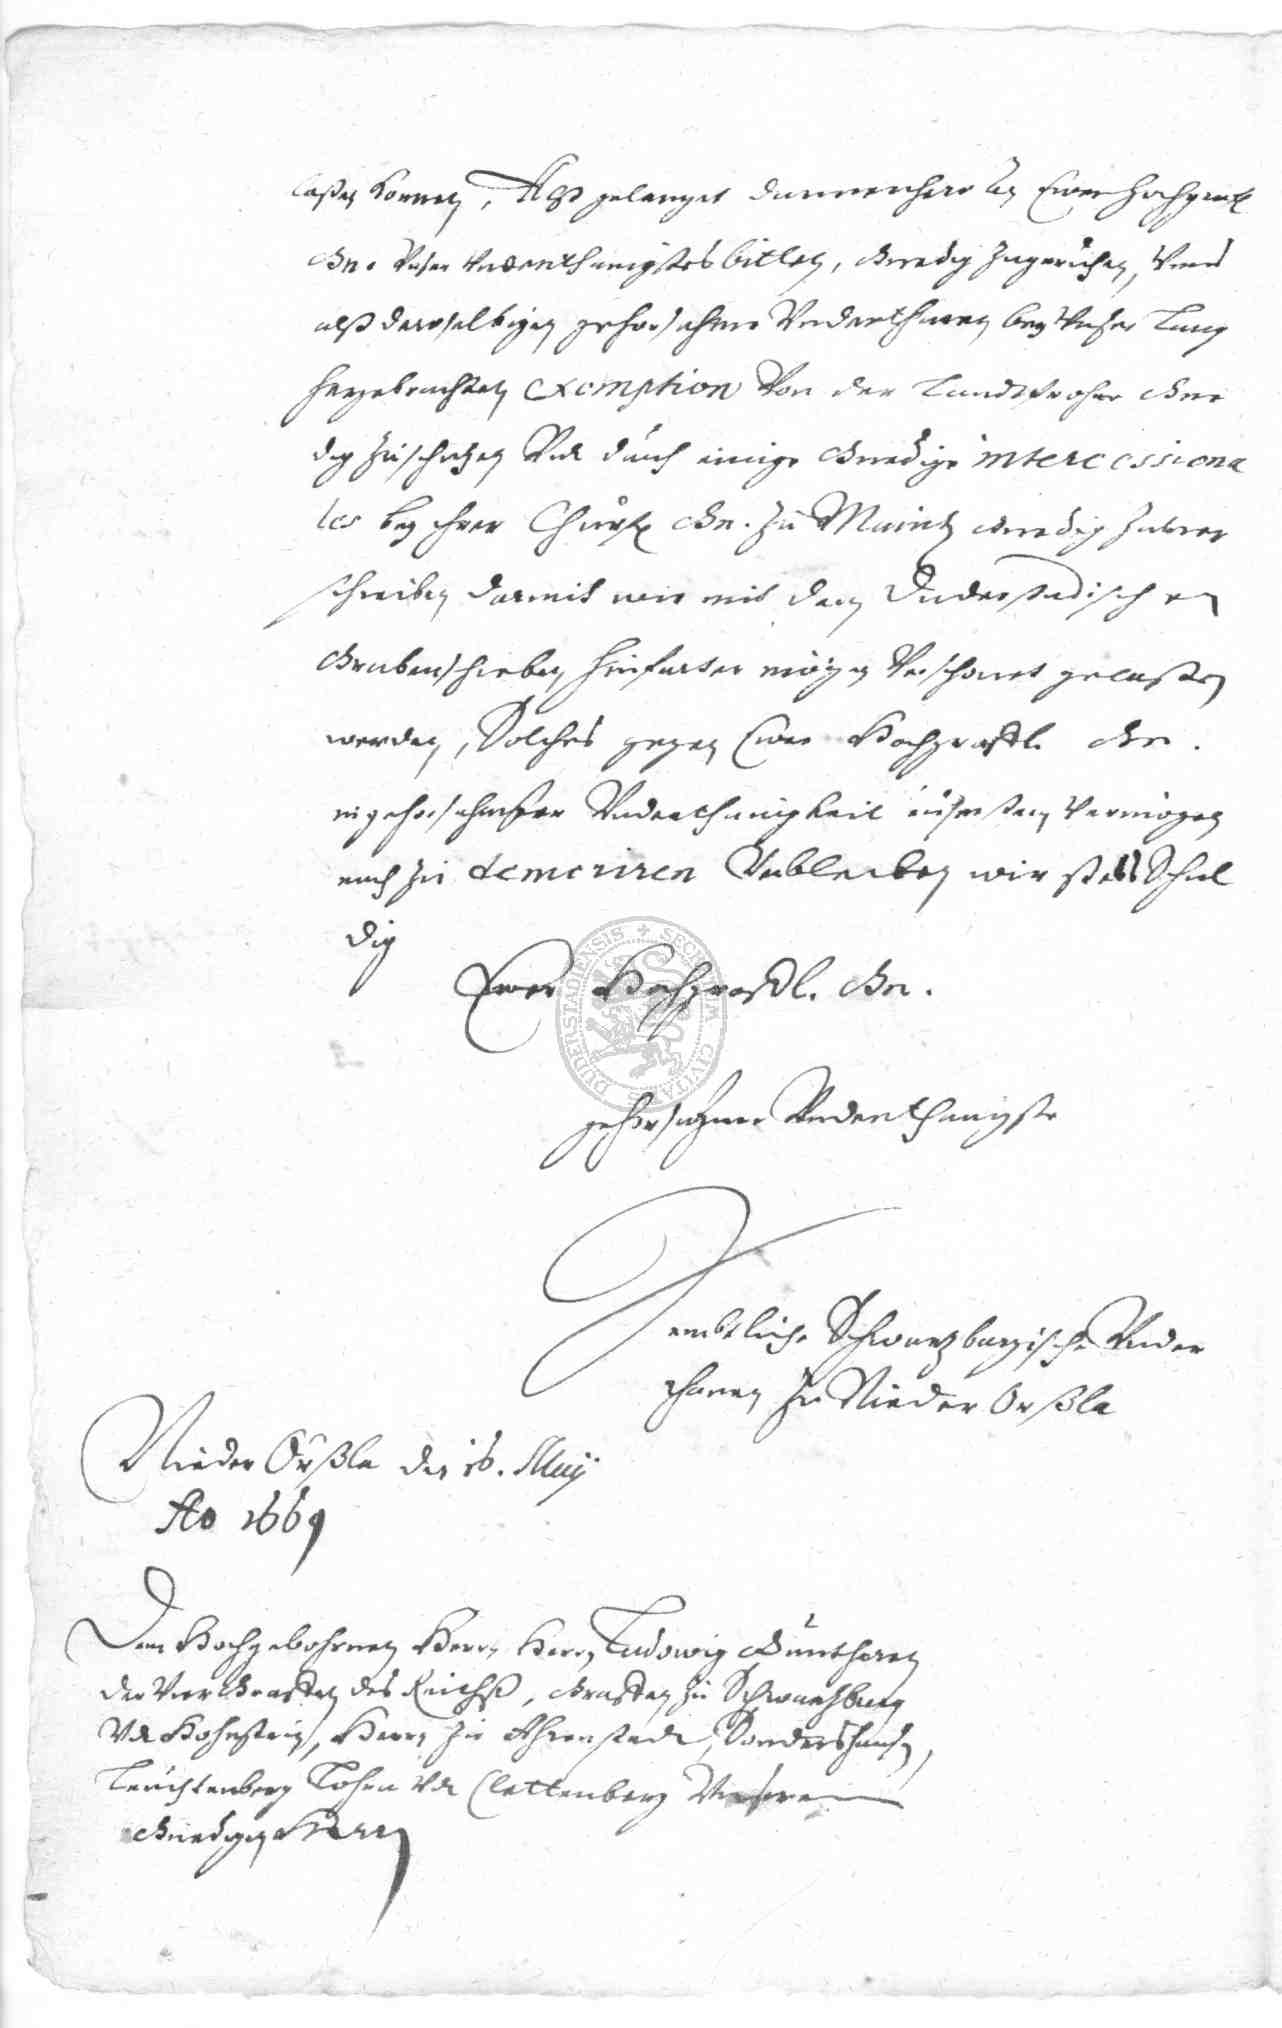 laßen können, Alß gelanget dannenhero an Ewer Hochgräfl
Gn. Unser underthenigstes bitten, Gnedig zugeruhen, Uns
alß deroselbigen gehorsahme Underthanen bey Unser lang
hergebrachten Exemption Von der Landtfrohne Gne
dig zu schützen Und durch einige Gnedige intercessiona
les bey ihrer Churf Gn. zu Maintz Gnedig zu ver
schreiben damit wir mit dem Duderstadischen
Grabenschieben hinfurter mögen Verschonet gelaßen
werden, Solches gegen Ewer Hochgräffl. Gn.
in gehorsahmster Underthenigkeit eußerstem Vermögen
nach zu demeriren Verbleiben wir stets Schul
dig
Ewer Hochgräffl. Gn.
gehorsahme Underthenigste
Sembtliche Schwartzburgische Under
thanen zu Nieder Orßla
Nieder Orßla den 16. Maij
Ao 1669
Dem Hochgebohrnen Herrn Herrn Ludowig Günthern
der Vier Graffen des Reichß, Graffen zu Schwartzburg
Und Hohnstein, Herrn zu Ahrnstadt, Sondershausen,
Leuchtenberg Lohra Und Clettenberg Unserem
Gnedigen Herrn
DUDERSTADIENSIS + SECRETUM CIVITATIS